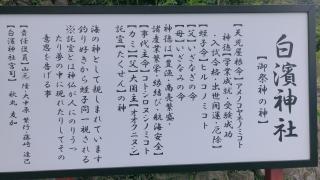 白濱神社
【御祭神の神】
【天児屋根命】アメノコヤネノミコト
神徳【学業成就・受験成功
・入試合格・出世開運・厄除】
【蛭子命】ヒルコノミコト
【父】いざなぎの命
【母】いざなみの命
神徳は【豊漁・商売繁盛
諸産業繁栄・縁結び・航海安全】
【事代主命】コトシロヌシノミコト
【カミ】【父】大国主【オオクニヌシ】
託宣【たくせん】の神
海の神として信仰されています
釣り好きから蛭子同一視される
※託宣とは神仏が人にのりうつ
たり夢の中に現れたりしてその
意思を告げる事
【責任役員】
【白濱神社宮司】